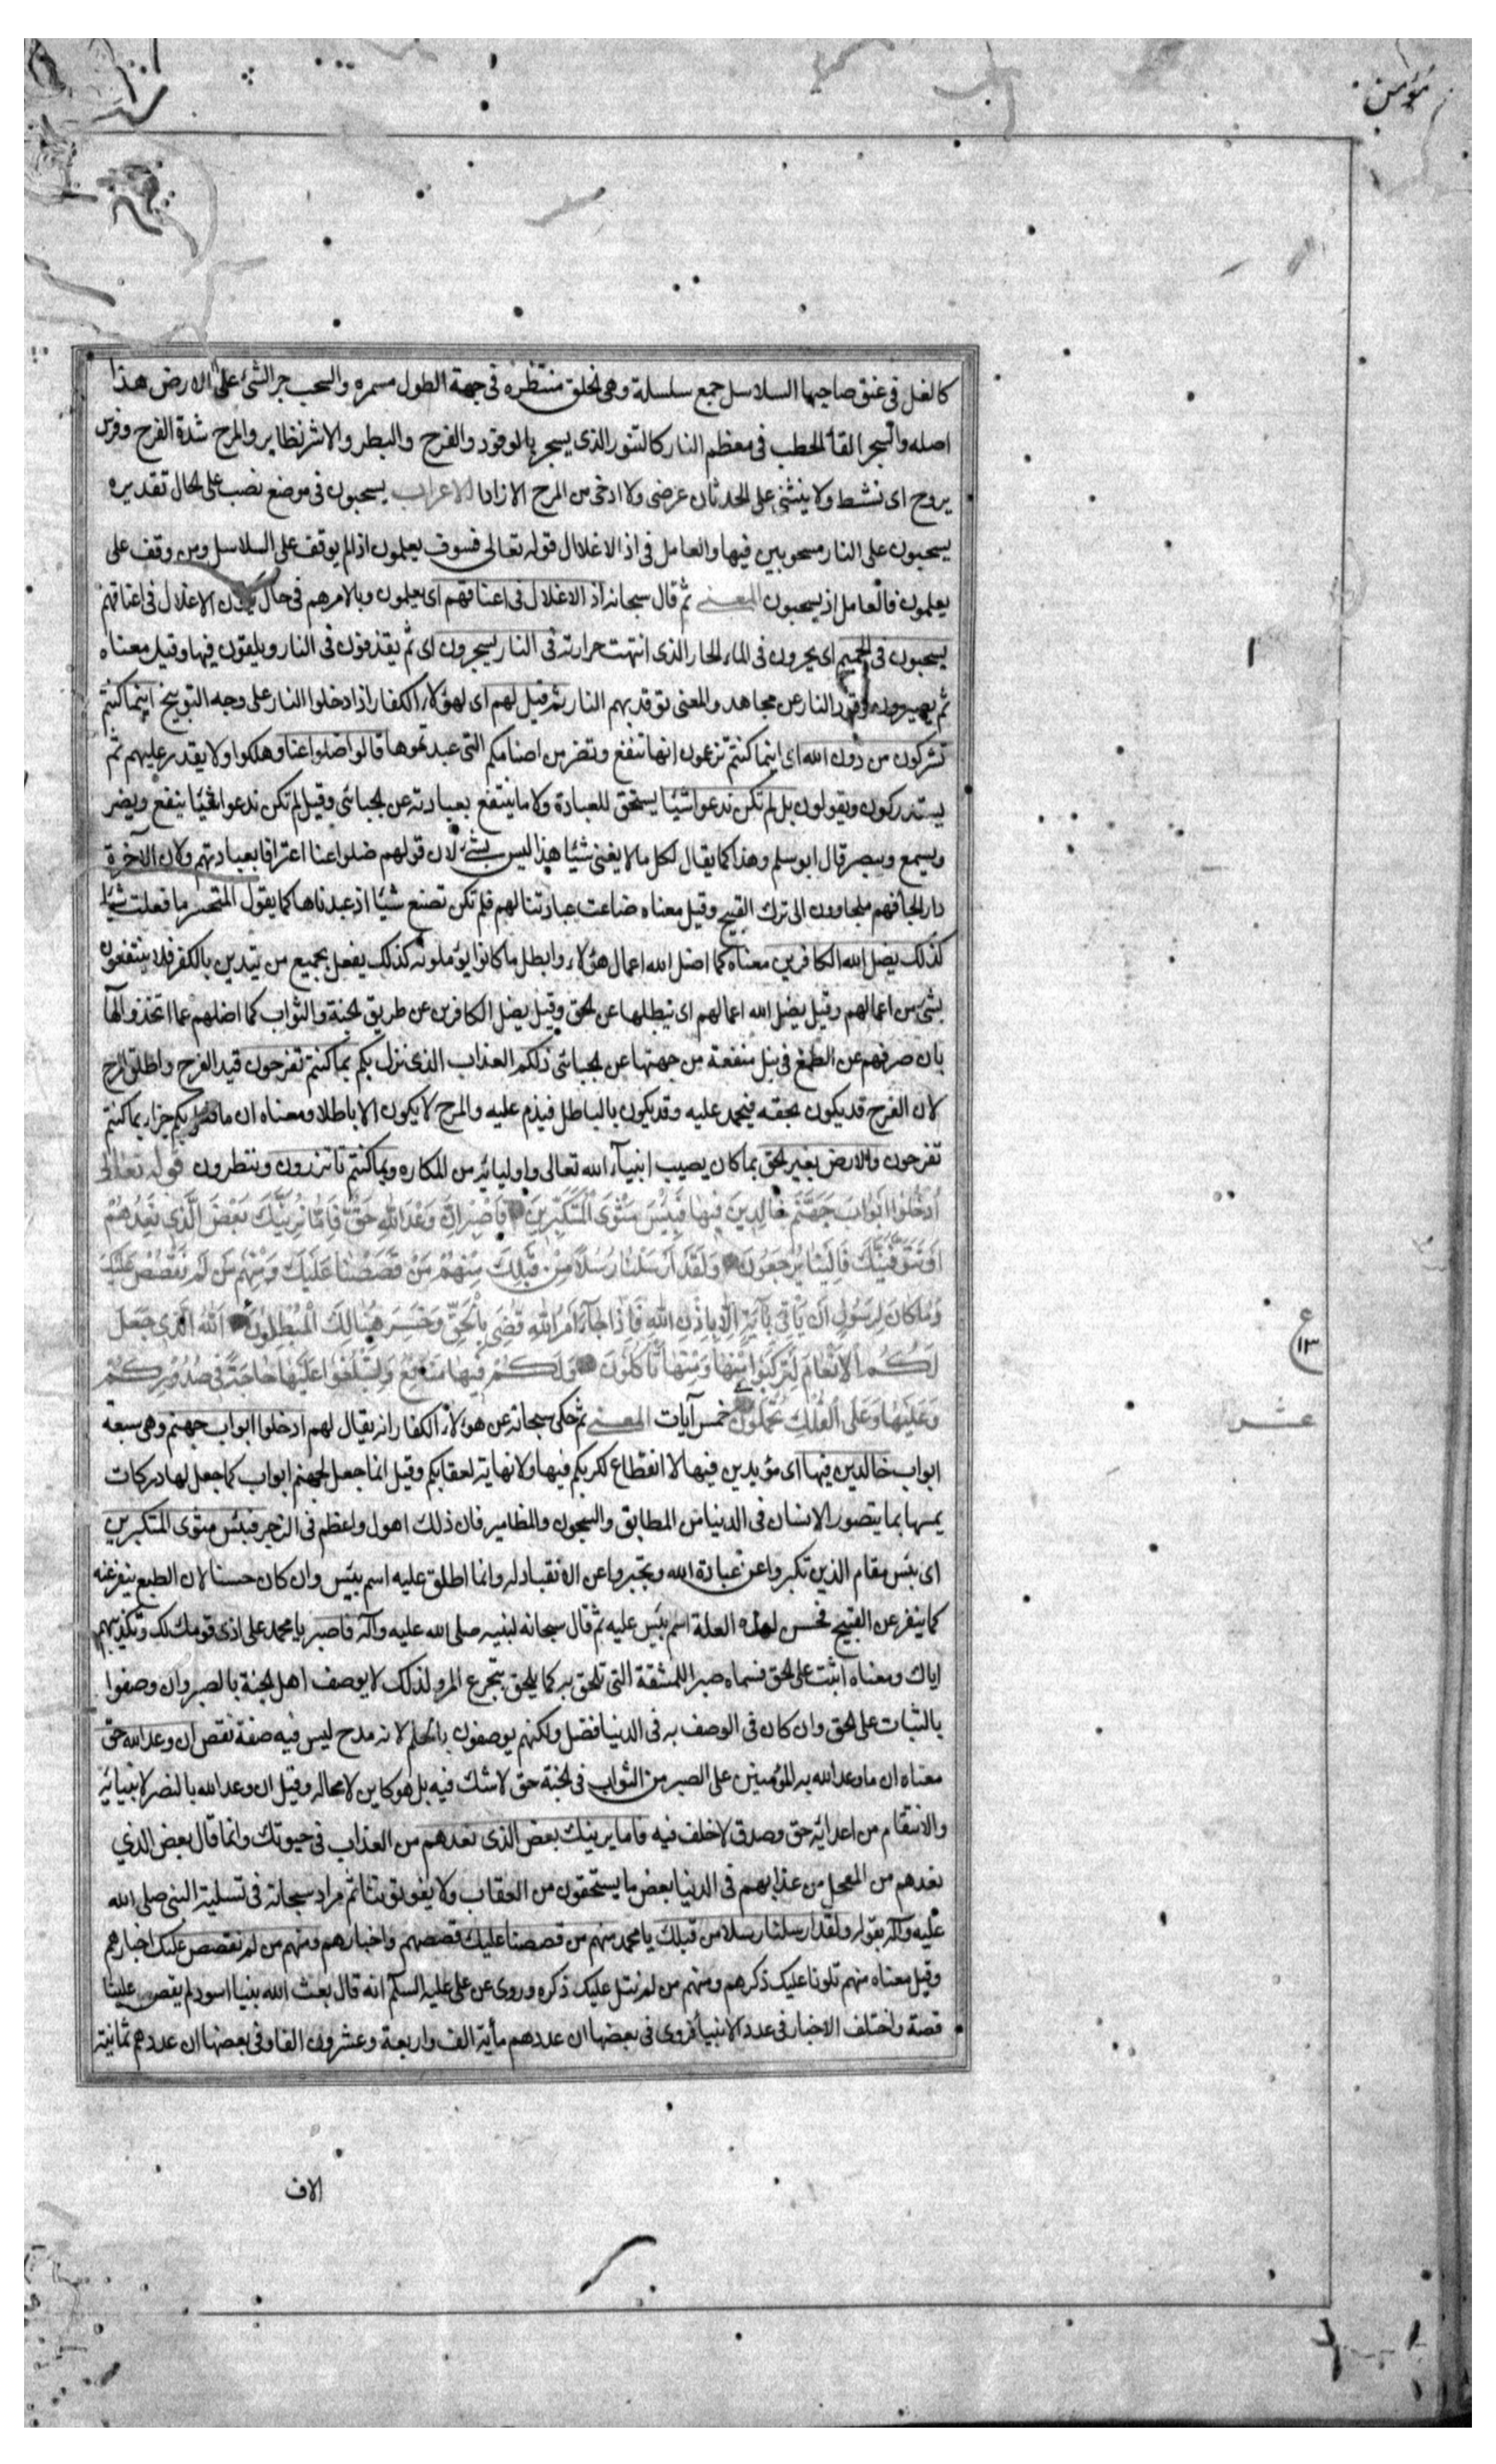 مؤمن
كالغل فى عنق صاحبها السلاسل جمع سلسلة وهى لحلق منتظرة فى جهة الطول مسمره والسحب جر الشئ على الارض هذا
اصله والسجر القأ الحطب فى معظم النار كالتنور الذى يسجر بالوقود والفرح والبطر والاشر نظاير والمرح شدة الفرح وفرس
يروح اى نشط ولا ينثنى على الحدثان عرضى ولا ارخى من المرح الازادا الاعراب يسحبون فى موضع نصب على لحال تقديره
يسحبون على النار مسحوبين فيها والعامل فى اذ الاغلال قوله تعالى فسوف يعلمون اذ لم يوقف على السلاسل ومن وقف على
يعلمون فالعامل اذ يسحبون المعنى ثم قال سبحانه اذ الاغلال فى اعناقهم اى يعلمون وبالامرهم فى حال يكون الاغلال فى اعناقهم
يسحبون فى الحميم اى يجرون فى الماء الحار الذى انتهت حرارته فى النار يسجرون اى ثم يقذفون فى النار ويلقون فيها وقيل معناه
ثم يصيرون وقود النار عن مجاهد والمعنى توقد بهم النار ثم قيل لهم اى لهؤلاء الكفار اذا دخلوا النار على وجه التوبيخ اينما كنتم
تشركون من دون الله اى اينما كنتم تزعمون انها تنفع وتضر من اصنامكم التى عبدتموها قالوا ضلوا عنا وهلكوا ولا يقدر عليهم ثم
يستدركون ويقولون بل لم تكن ندعوا شيئا يستحق للعبادة ولا ما ينتفع بعبادته عن لجبائى وقيل لم تكن ندعوا شيئا ينفع ويضر
ويسمع ويبصر قال ابو سلم وهذا كما يقال لكل ما لا يغنى شيئا هذا ليس بشئ لان قولهم ضلوا عنا اعترافا بعبادتهم ولان الآخرة
دار لجأ فهم ملجاوون الى ترك القبيح وقيل معناه ضاعت عبادتنا لهم فلم تكن تصنع شيئا اذ عبدناها كما يقول المتحسر ما فعلت شيئا
كذلك يضل الله الكافرين معناه كما اضل الله اعمال هؤلاء وابطل ما كانوا يؤملونه كذلك يفعل بجميع من يتدين بالكفر فلا ينتفعون
بشئ من اعمالهم وقيل يضل الله اعمالهم اى يبطلها عن لحق وقيل يضل الكافرين عن طريق لجنة والثواب كما اضلهم عما اتخذوه الها
بان صرفهم عن الطمع فى نيل منفعة من جهتها عن لجبائى ذلكم العذاب الذى نزل بكم بما كنتم تفرحون قيد الفرح واطلق المرح
لان الفرح قد يكون بحقه فيحمد عليه وقد يكون بالباطل فيذم عليه والمرح لا يكون الا باطلا ومعناه ان ما بكم جزاء بما كنتم
تفرحون والارض بغير لحق بما كان يصيب انبيآء الله تعالى واوليائه من المكاره وبما كنتم تاشرون وتبطرون قوله تعالى
اُدْخُلُوا اَبْوَابَ جَهَنَّمَ خَالِدِينَ فِيهَا فَبِئْسَ مَثْوَى الْمُتَكَبِّرِينَ فَاصْبِرْ اِنَّ وَعْدَ اللهِ حَقٌّ فَاِمَّا نُرِيَنَّكَ بَعْضَ الَّذِى نَعِدُهُمْ
اَوْ نَتَوَفَّيَنَّكَ فَاِلَيْنَا يُرْجَعُونَ وَلَقَدْ اَرْسَلْنَا رُسُلًا مِنْ قَبْلِكَ مِنْهُمْ مَنْ قَصَصْنَا عَلَيْكَ وَمِنْهُمْ مَنْ لَمْ نَقْصُصْ عَلَيْكَ
وَمَا كَانَ لِرَسُولٍ اَنْ يَاْتِىَ بِآيَةٍ اِلَّا بِاِذْنِ اللهِ فَاِذَا جَآءَ اَمْرُ اللهِ قُضِىَ بِالْحَقِّ وَخَسِرَ هُنَالِكَ الْمُبْطِلُونَ اَللهُ الَّذِى جَعَلَ
لَكُمُ الْاَنْعَامَ لِتَرْكَبُوا مِنْهَا وَمِنْهَا تَاْكُلُونَ وَلَكُمْ فِيهَا مَنَافِعُ وَلِتَبْلُغُوا عَلَيْهَا حَاجَةً فِى صُدُورِكُمْ
ع ١٣
وَعَلَيْهَا وَعَلَى الْفُلْكِ تُحْمَلُونَ خمس آيات المعنى ثم حكى سبحانه عن هؤلاء الكفار انه يقال لهم ادخلوا ابواب جهنم وهى سبعة
عشر
ابواب خالدين فيها اى مؤبدين فيها لا انقطاع لكربكم فيها ولا نهاية لعقابكم وقيل انما جعل لجهنم ابواب كما جعل لها دركات
بما يتصور الانسان فى الدنيا من المطابق والسجون والمطامير فان ذلك اهول واعظم فى الزجر فبئس مثوى المتكبرين
اى بئس مقام الذين تكبروا عن عبادة الله وتجبروا عن الانقياد له وانما اطلق عليه اسم بئس وان كان حسنا لان الطبع ينفر عنه
كما ينفر عن القبيح فحسن لهذه العلة اسم بئس عليه ثم قال سبحانه لنبيه صلى الله عليه وآله فاصبر يا محمد على اذى قومك لك وتكذيبهم
اياك ومعناه اثبت على لحق فسماه صبرا للمشقة التى تلحق به كما يلحق بتجرع المر ولذلك لا يوصف اهل لجنة بالصبر وان وصفوا
بالثبات على لحق وان كان فى الوصف به فى الدنيا فضل ولكنهم يوصفون بالحلم لانه مدح ليس فيه صفة نقص ان وعد الله حق
معناه ان ما وعد الله به المؤمنين على الصبر من الثواب فى لجنة حق لا شك فيه بل هو كاين لا محاله وقيل ان وعد الله بالنصر لانبيائه
والانتقام من اعدائه حق وصدق لا خلف فيه فاما يرينك بعض الذى نعدهم من العذاب فى حيوتك وانما قال بعض الذي
نعدهم من المعجل من عذابهم فى الدنيا بعض ما يستحقون من العقاب ولا يفو ثم زاد سبحانه فى تسلية النبى صلى الله
عليه وآله بقوله ولقد ارسلنا رسلا من قبلك يا محمد منهم من قصصنا عليك قصصهم واخبارهم ومنهم من لم نقصص عليك اخبارهم
وقيل معناه منهم تلونا عليك ذكرهم ومنهم من لم نتل عليك ذكره وروى عن على عليه السلم انه قال بعث الله نبيا اسود لم يقص علينا
قصة واختلف الاخبار فى عدد الانبيأ فروى فى بعضها ان عددهم مأية الف واربعة وعشرون الفا وفى بعضها ان عددهم ثمانية
الاف